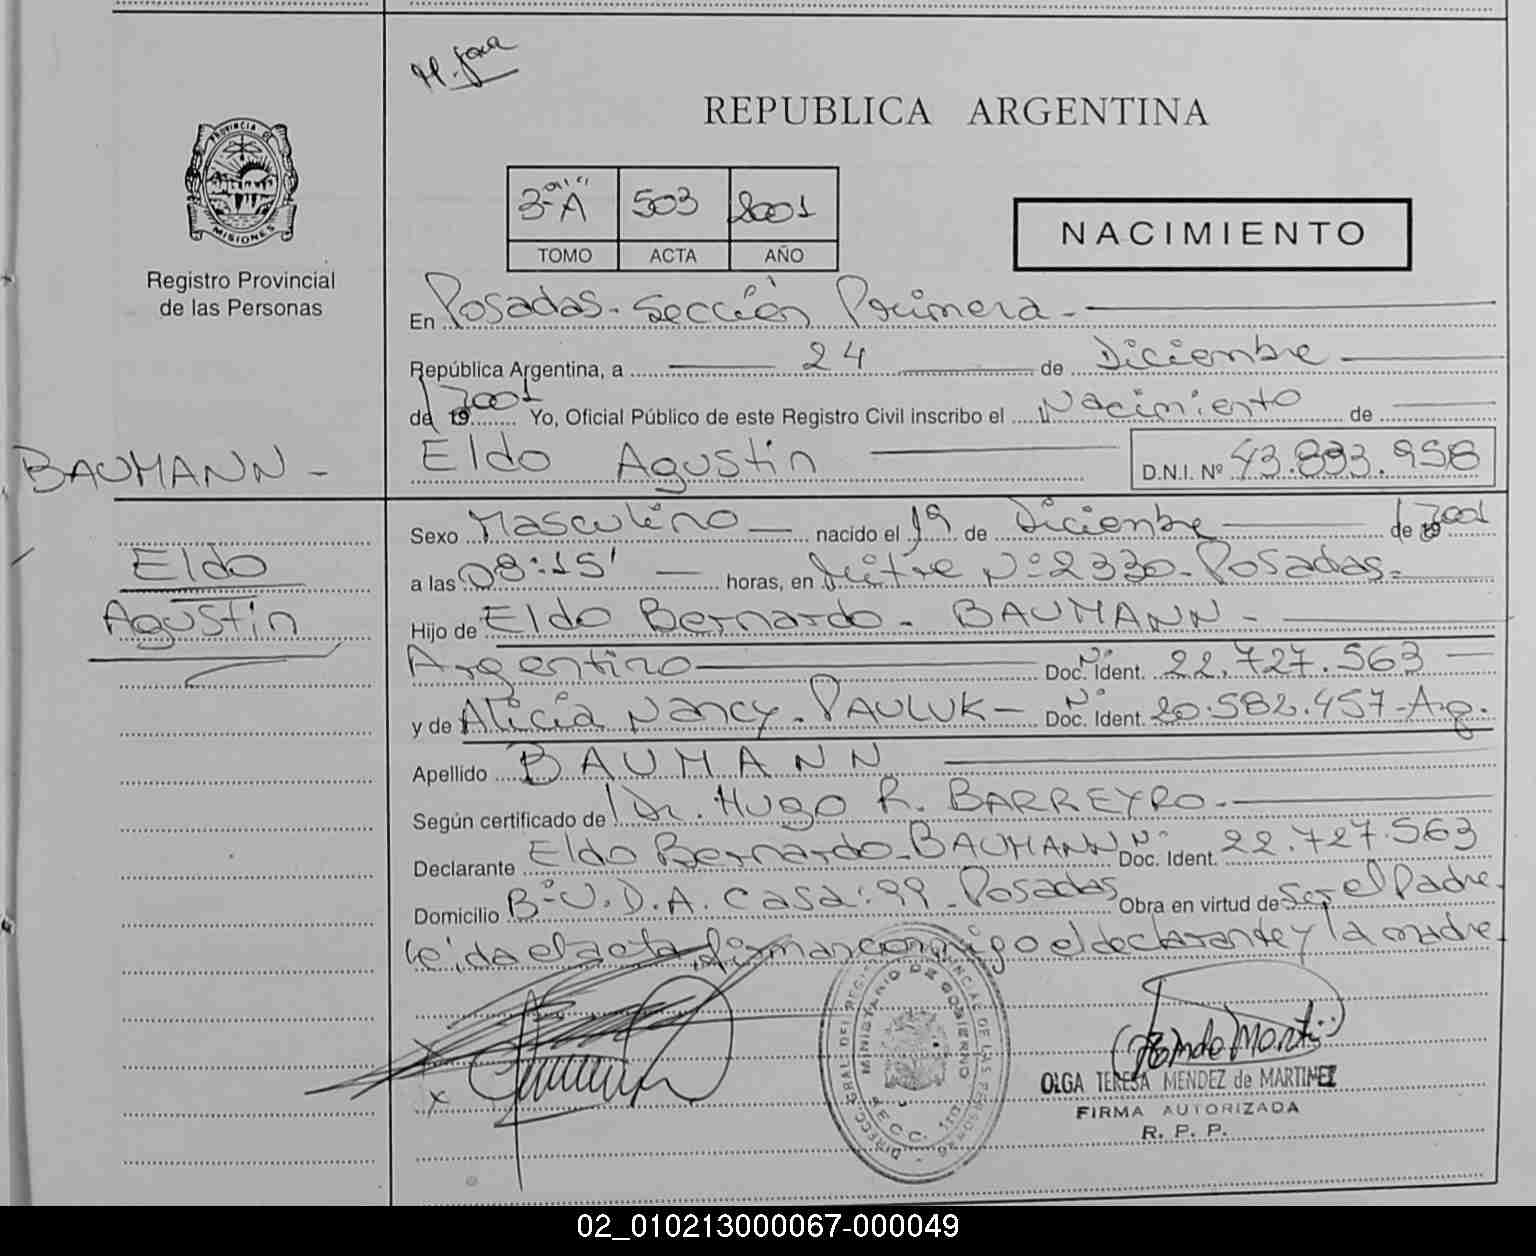 REPUBLICA ARGENTINA
PROVINCIA DE
MISIONES
Registro Provincial
de las Personas
3-"A" 503 2001
TOMO ACTA AÑO
NACIMIENTO
En Posadas-Sección Primera-
República Argentina, a 24 de Diciembre
de 19 2001 Yo, Oficial Público de este Registro Civil inscribo el Nacimiento de
BAUMANN -
Eldo Agustin D.N.I. Nº 43.893.958
Eldo
Agustin
Sexo Masculino nacido el 19 de Diciembre de 19 2001
a las 08:15' horas, en Mitre Nº 2330-Posadas-
Hijo de Eldo Bernardo - BAUMANN -
Argentino Doc. Ident. Nº 22.727.563
y de Alicia Nancy-PAULUK- Doc. Ident. Nº 20.582.457-Arg.
Apellido BAUMANN
Según certificado de Dr. Hugo R. BARREYRO-
Declarante Eldo Bernardo-BAUMANN Doc. Ident. Nº 22.727.563
Domicilio Bº U.D.A. Casa: 99-Posadas Obra en virtud de Ser el Padre.
Leida el acta, firman conmigo el declarante y la madre.
MINISTERIO DE GOBIERNO
OLGA TERESA MENDEZ de MARTINEZ
FIRMA AUTORIZADA
R. P. P.
02_010213000067-000049